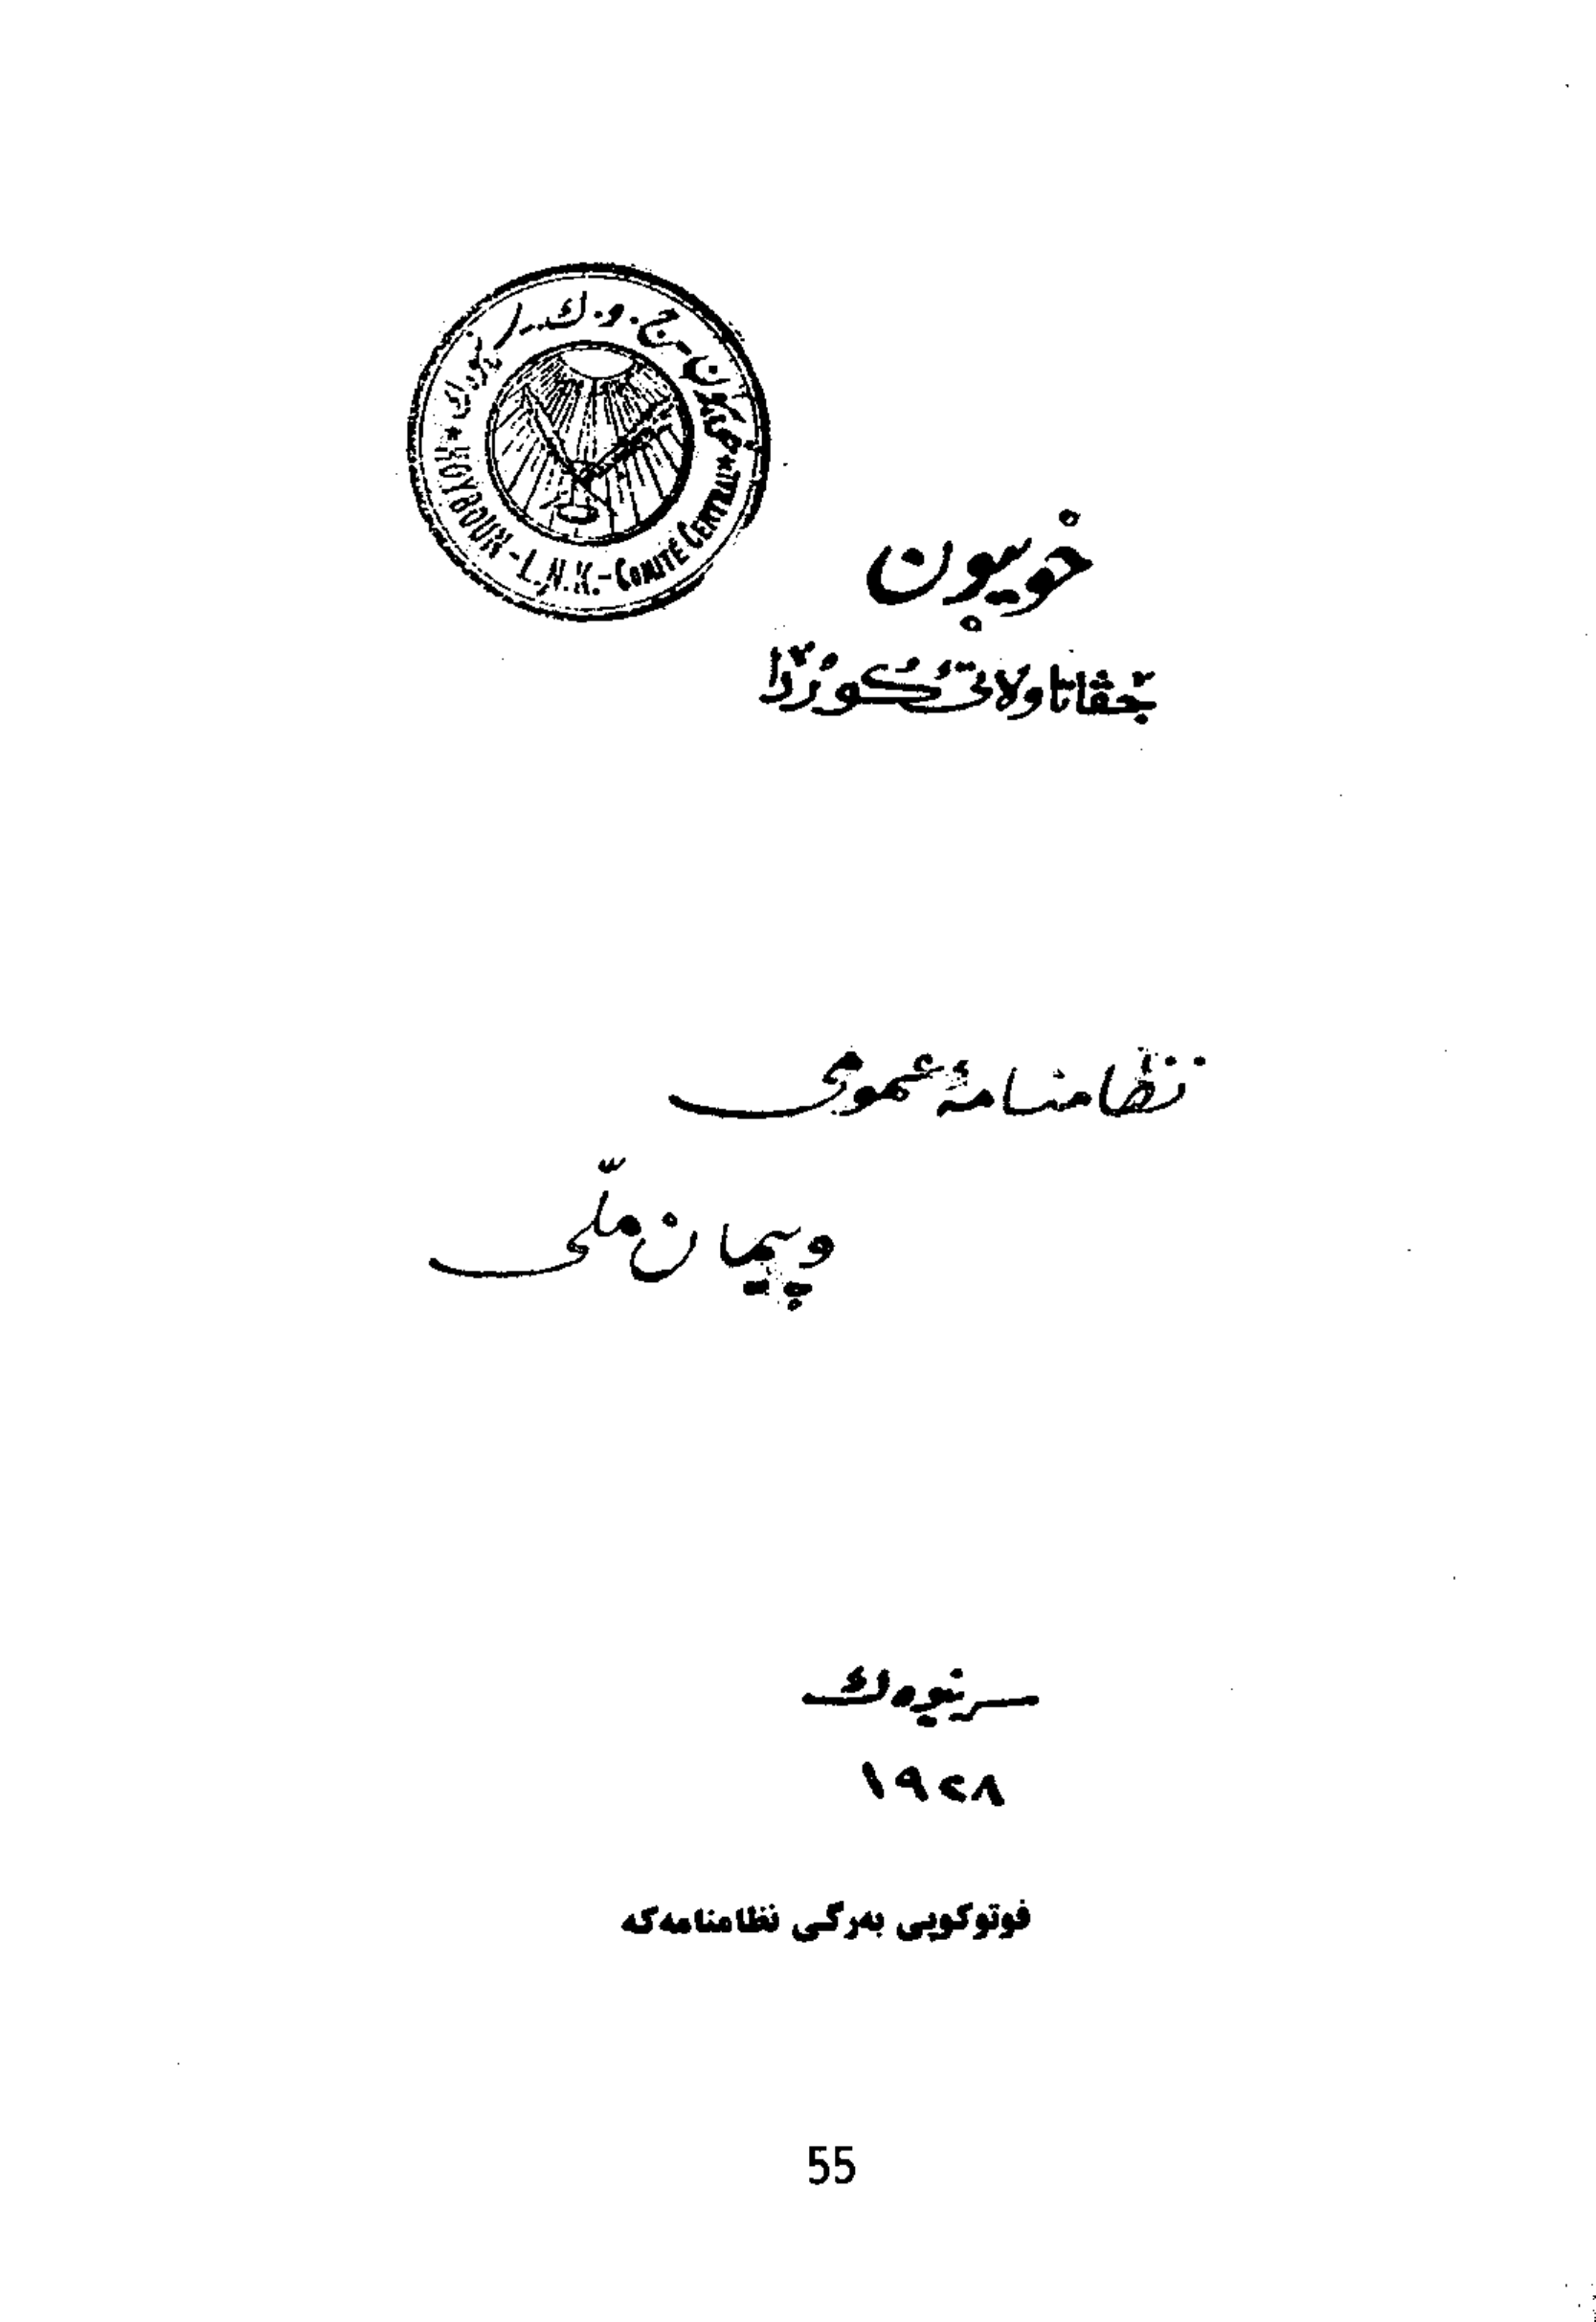 خویبون - ج. و. ك.
HOYBOUN - L.N.K. - COMITÉ CENTRAL
خویبون
جڤاتا ولاتێ کورددا
نظامنامهٔ عمومی
و پیمان ملّی
سرنیوەك
١٩٢٨
فوتوکوپی بەرگی نظامنامەکە
55